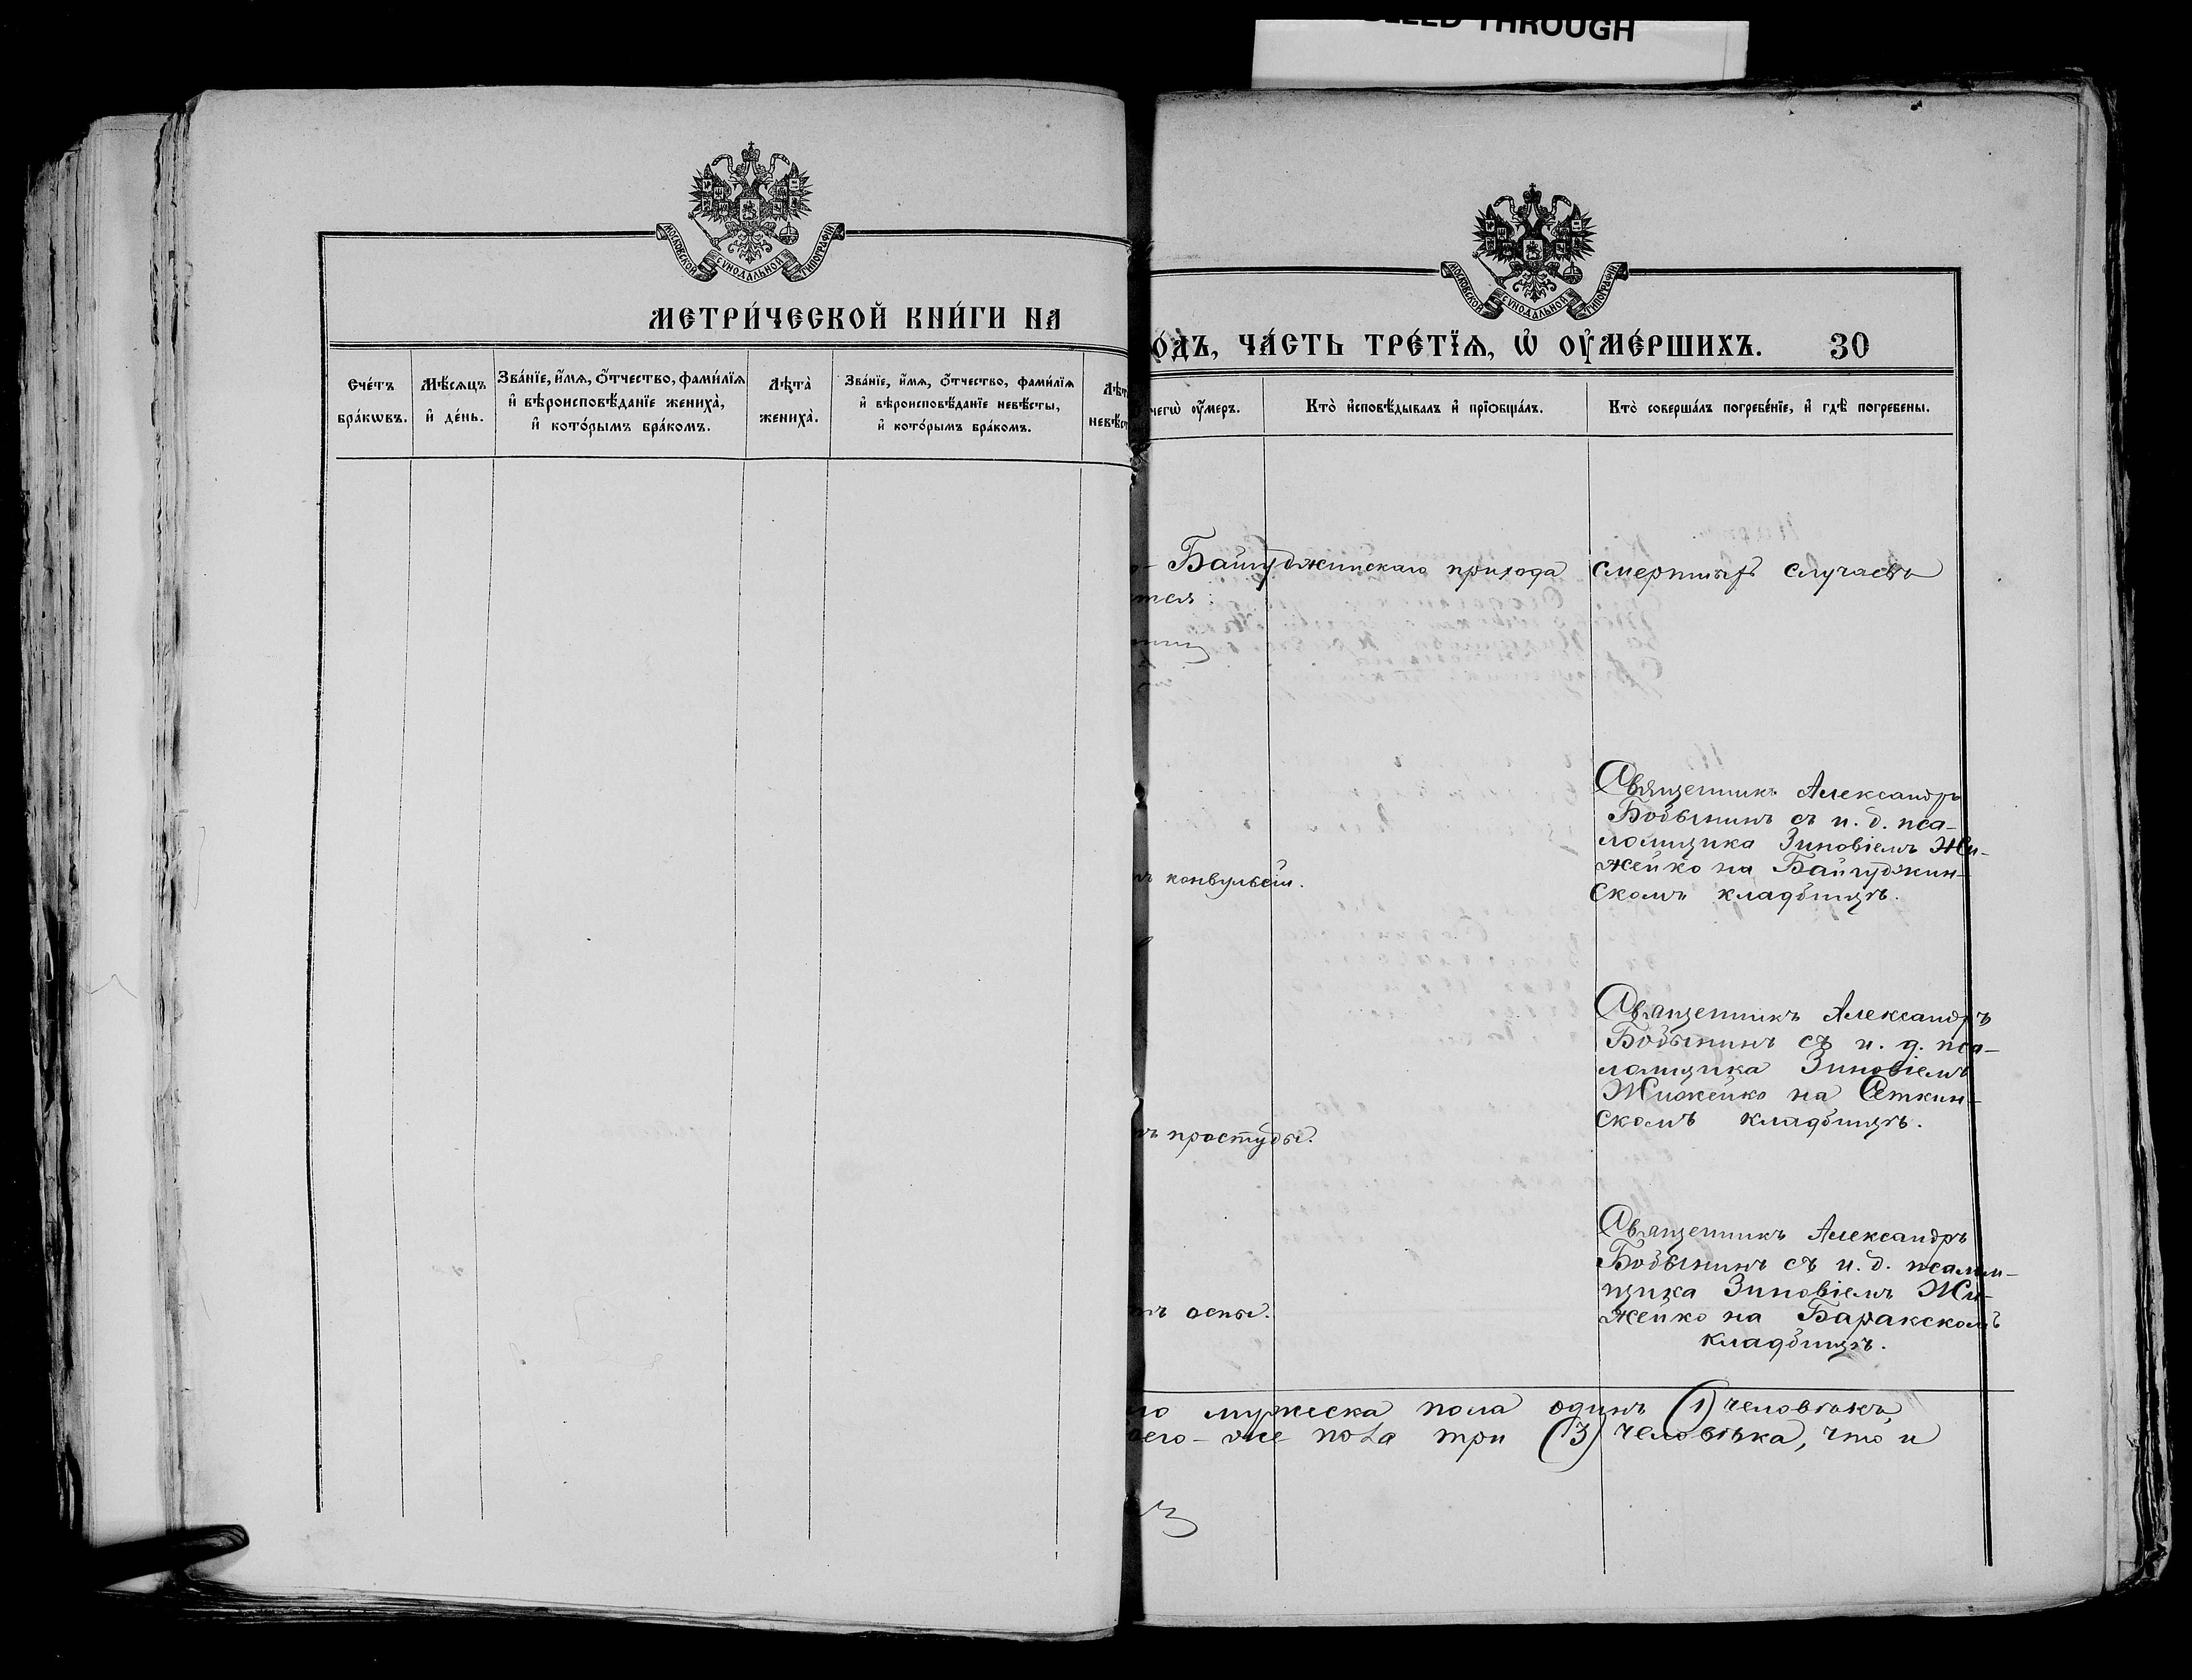 THROUGH
МОСКОВСКОЙ СѴНОДАЛЬНОЙ ТИПОГРАФІИ
МЕТРИ́ЧЕСКОЙ КНИ́ГИ НА
Сче́тъ бра́кωвъ.
Мѣ́сяцъ и҆ де́нь.
Зва́нїе, и҆́мѧ, ѻ҆́тчество, фами́лїѧ
и҆ вѣроисповѣ́данїе жениха̀,
и҆ кото́рымъ бра́комъ.
Лѣ̑та̀ жениха̀.
Зва́нїе, и҆́мѧ, ѻ҆́тчество, фами́лїѧ
и҆ вѣроисповѣ́данїе невѣ́сты,
и҆ кото́рымъ бра́комъ.
МОСКОВСКОЙ СѴНОДАЛЬНОЙ ТИПОГРАФІИ
о́дъ, ча́сть тре́тїѧ, ѡ҆ ᲂу҆ме́ршихъ. 30
чегѡ̀ ᲂу҆́меръ.
Кто̀ и҆сповѣ́дывалъ и҆ прїѻбща́лъ.
Кто̀ соверша́лъ погребе́нїе, и҆ гдѣ̀ погребены.
Байгуджинскаго прихода смертныхъ случаевъ
тся:
Священникъ Александръ
Бобынинъ съ и. д. пса-
ломщика Зиновіемъ Жи-
жейко на Байгуджин-
скомъ кладбищѣ.
конвульсіи.
Священникъ Александръ
Бобынинъ съ и. д. пса-
ломщика Зиновіемъ
Жижейко на Сеткин-
скомъ кладбищѣ.
простуды.
Священникъ Александръ
Бобынинъ съ и. д. псалом-
щика Зиновіемъ Жи-
жейко на Баракскомъ
кладбищѣ.
оспы.
мужеска пола одинъ (1) человѣкъ,
его-же пола три (3) человѣка, что и